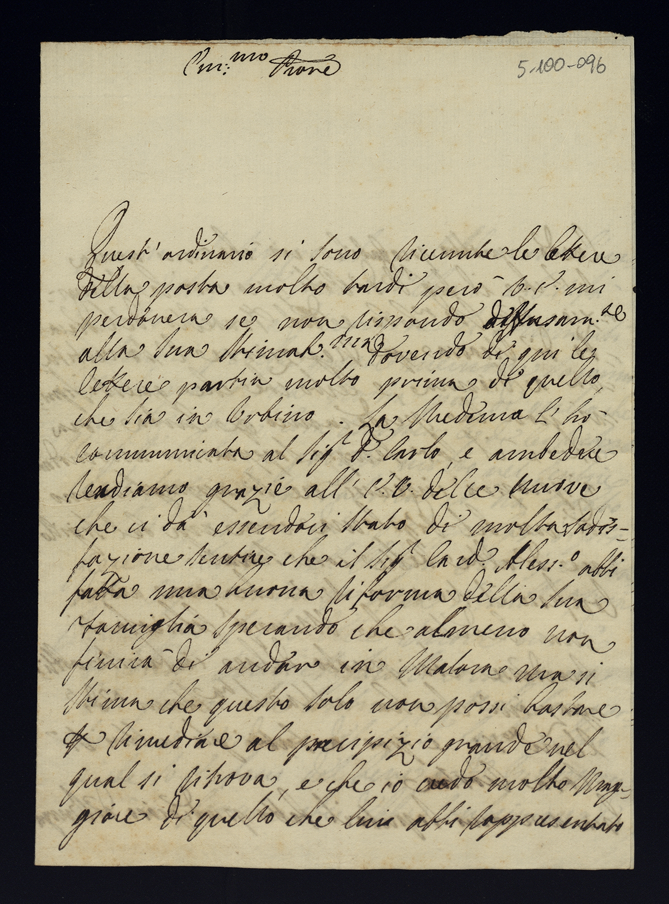 Em:mo Prone
5-100-096
Quest' ordinario si sono ricevute le lettere
della posta molto tardi però V. E. mi
perdonerà se non rispondo diffusam.te
alla sua stimat.ma dovendo di qui le
lettere partir molto prima di quello
che sia in Urbino. La Medema l' ho
communicata al Sig.r D. Carlo, e ambedue
rendiamo grazie all' E. V. delle nuove
che ci dà essendoci stato di molta sadis-
fazione sentire che il Sig.r Card. Aless.o abbi
fatta una buona riforma della sua
famiglia sperando che almeno non
finirà di andar in malora ma si
stima che questo solo non possi bastare
p rimediare al precipizio grande nel
qual si ritrova, e che io credo molto mag-
giore di quello che lui abbi rappresentato